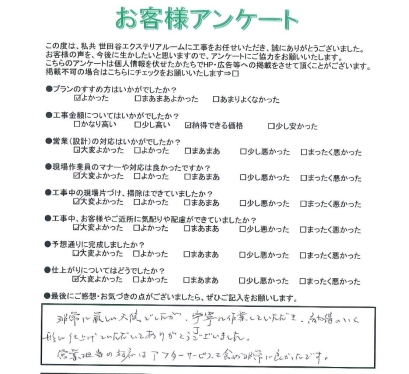 お客様アンケート
この度は、私共 世田谷エクステリアルームに工事をお任せいただき、誠にありがとうございました。
お客様の声を、今後に生かしたいと思いますので、アンケートにご協力をお願いいたします。
こちらのアンケートは個人情報を伏せたかたちでHP・広告等への掲載をさせて頂くことがございます。
掲載不可の場合はこちらにチェックをお願いいたします⇒□
●プランのすすめ方はいかがでしたか?
☑よかった □まあまあよかった □あまりよくなかった
●工事金額についてはいかがでしたか?
□かなり高い □少し高い ☑納得できる価格 □少し安かった
●営業(設計)の対応はいかがでしたか?
☑大変よかった □よかった □まあまあ □少し悪かった □まったく悪かった
●現場作業員のマナーや対応は良かったですか?
☑大変よかった □よかった □まあまあ □少し悪かった □まったく悪かった
●工事中の現場片づけ、掃除はできていましたか?
☑大変よかった □よかった □まあまあ □少し悪かった □まったく悪かった
●工事中、お客様やご近所に気配りや配慮ができていましたか?
☑大変よかった □よかった □まあまあ □少し悪かった □まったく悪かった
●予想通りに完成しましたか?
☑大変よかった □よかった □まあまあ □少し悪かった □まったく悪かった
●仕上がりについてはどうでしたか?
☑大変よかった □よかった □まあまあ □少し悪かった □まったく悪かった
●最後にご感想・お気づきの点がございましたら、ぜひご記入をお願いします。
非常に厳しい天候でしたが、丁寧に作業していただき、納得のいく
形に仕上げていただいてありがとうございました。
営業担当の対応はアフターサービスも含め非常に良かったです。